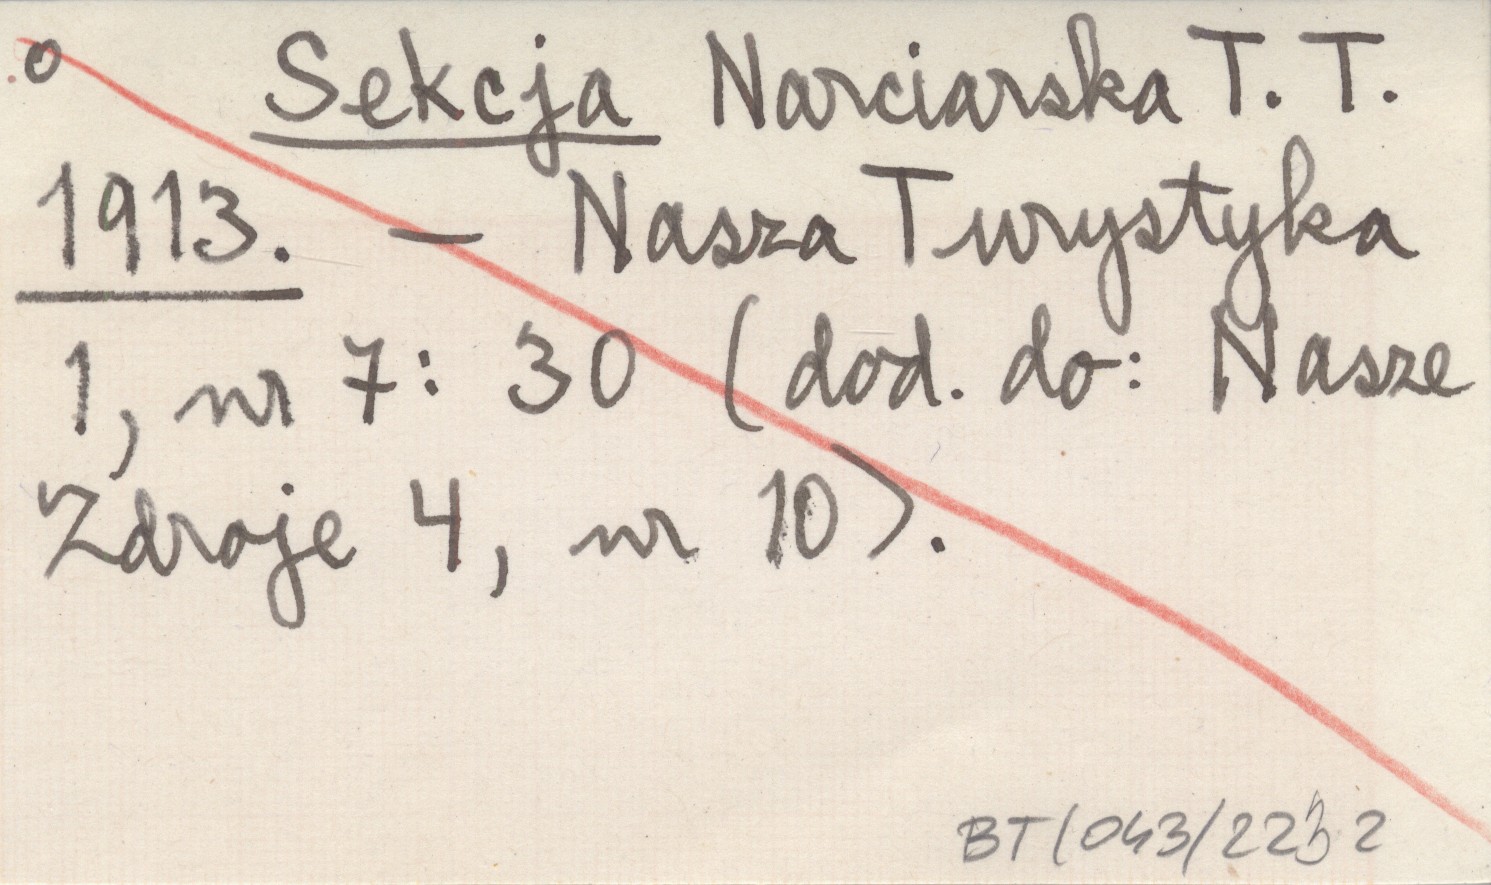 o Sekcja Narciarska T. T.
1913. — Nasza Turystyka
1, nr 7: 30 (dod. do: Nasze
Zdroje 4, nr 10).
BT/043/2232